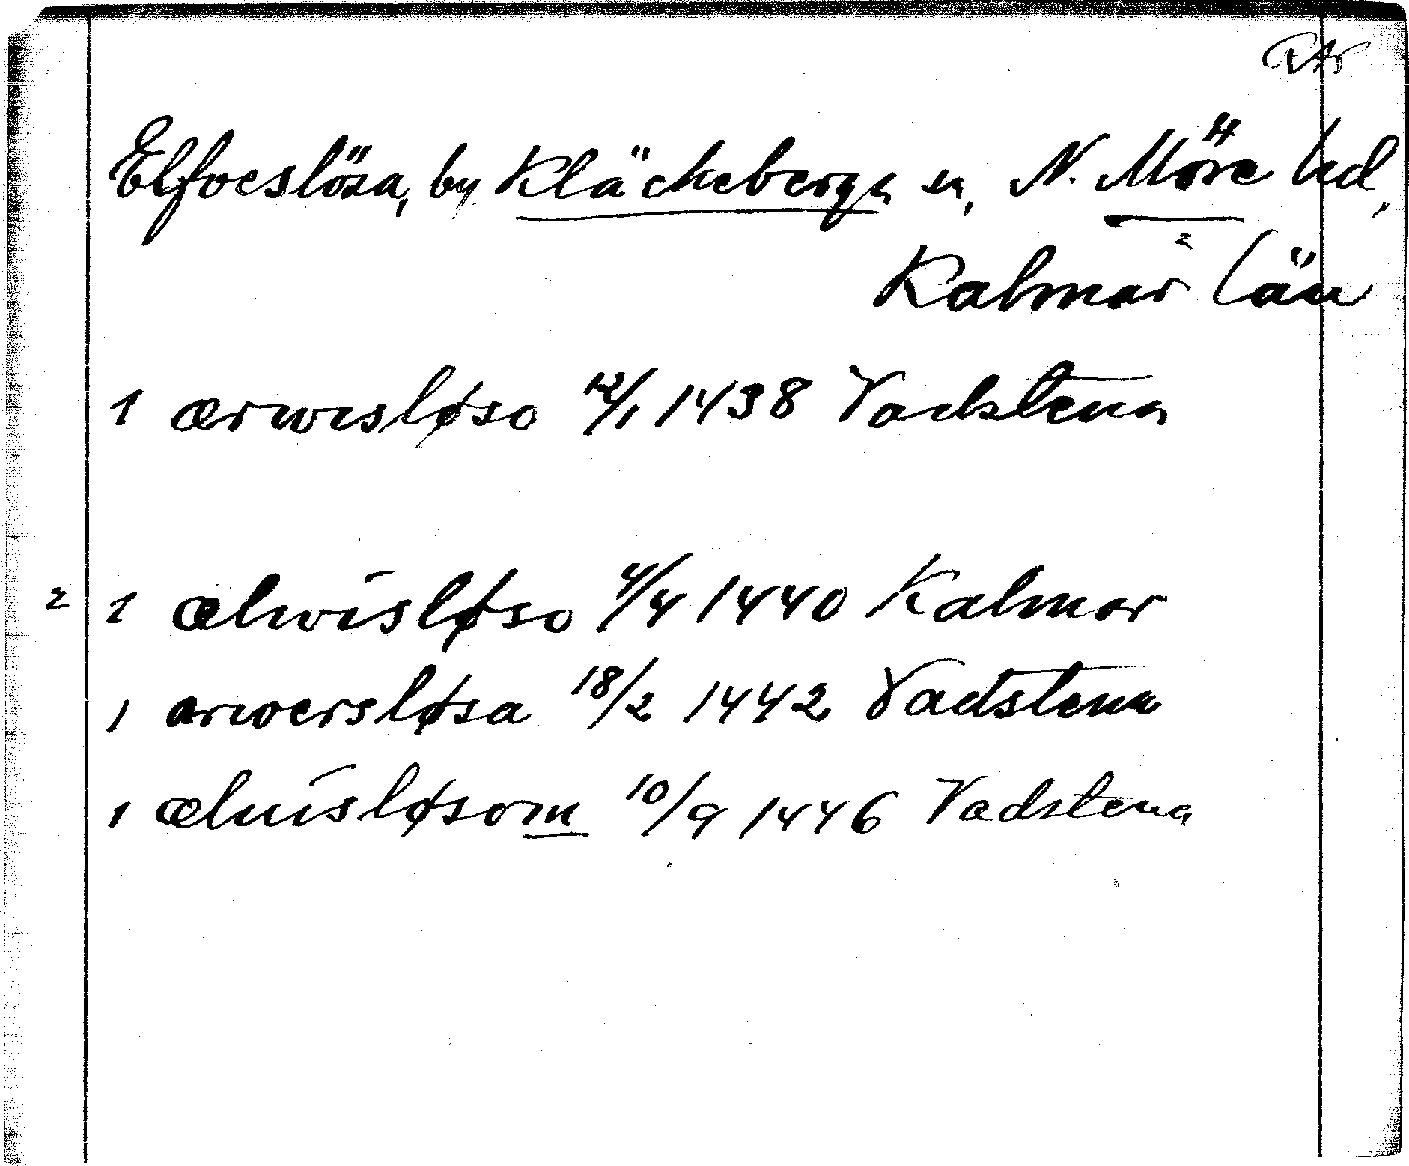 RAr
Elfveslösa, by Kläckeberga sn, N. Möre hd,
2
Kalmar län
1 ærwisløso 12/1 1438 Vadstena
2 1 ælwisløso 4/4 1440 Kalmar
1 arwersløsa 18/2 1442 Vadstena
1 æluisløsom 10/9 1446 Vadstena